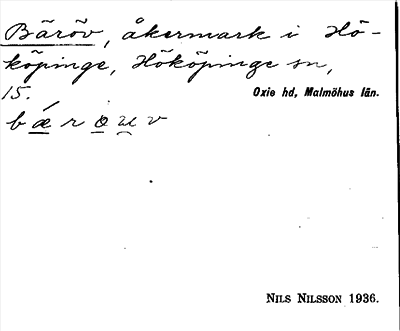 Bäröv, åkermark i Hö-
köpinge, Hököpinge sn,
15. Oxie hd, Malmöhus län.
b ǽ r o u̯ v
NILS NILSSON 1936.